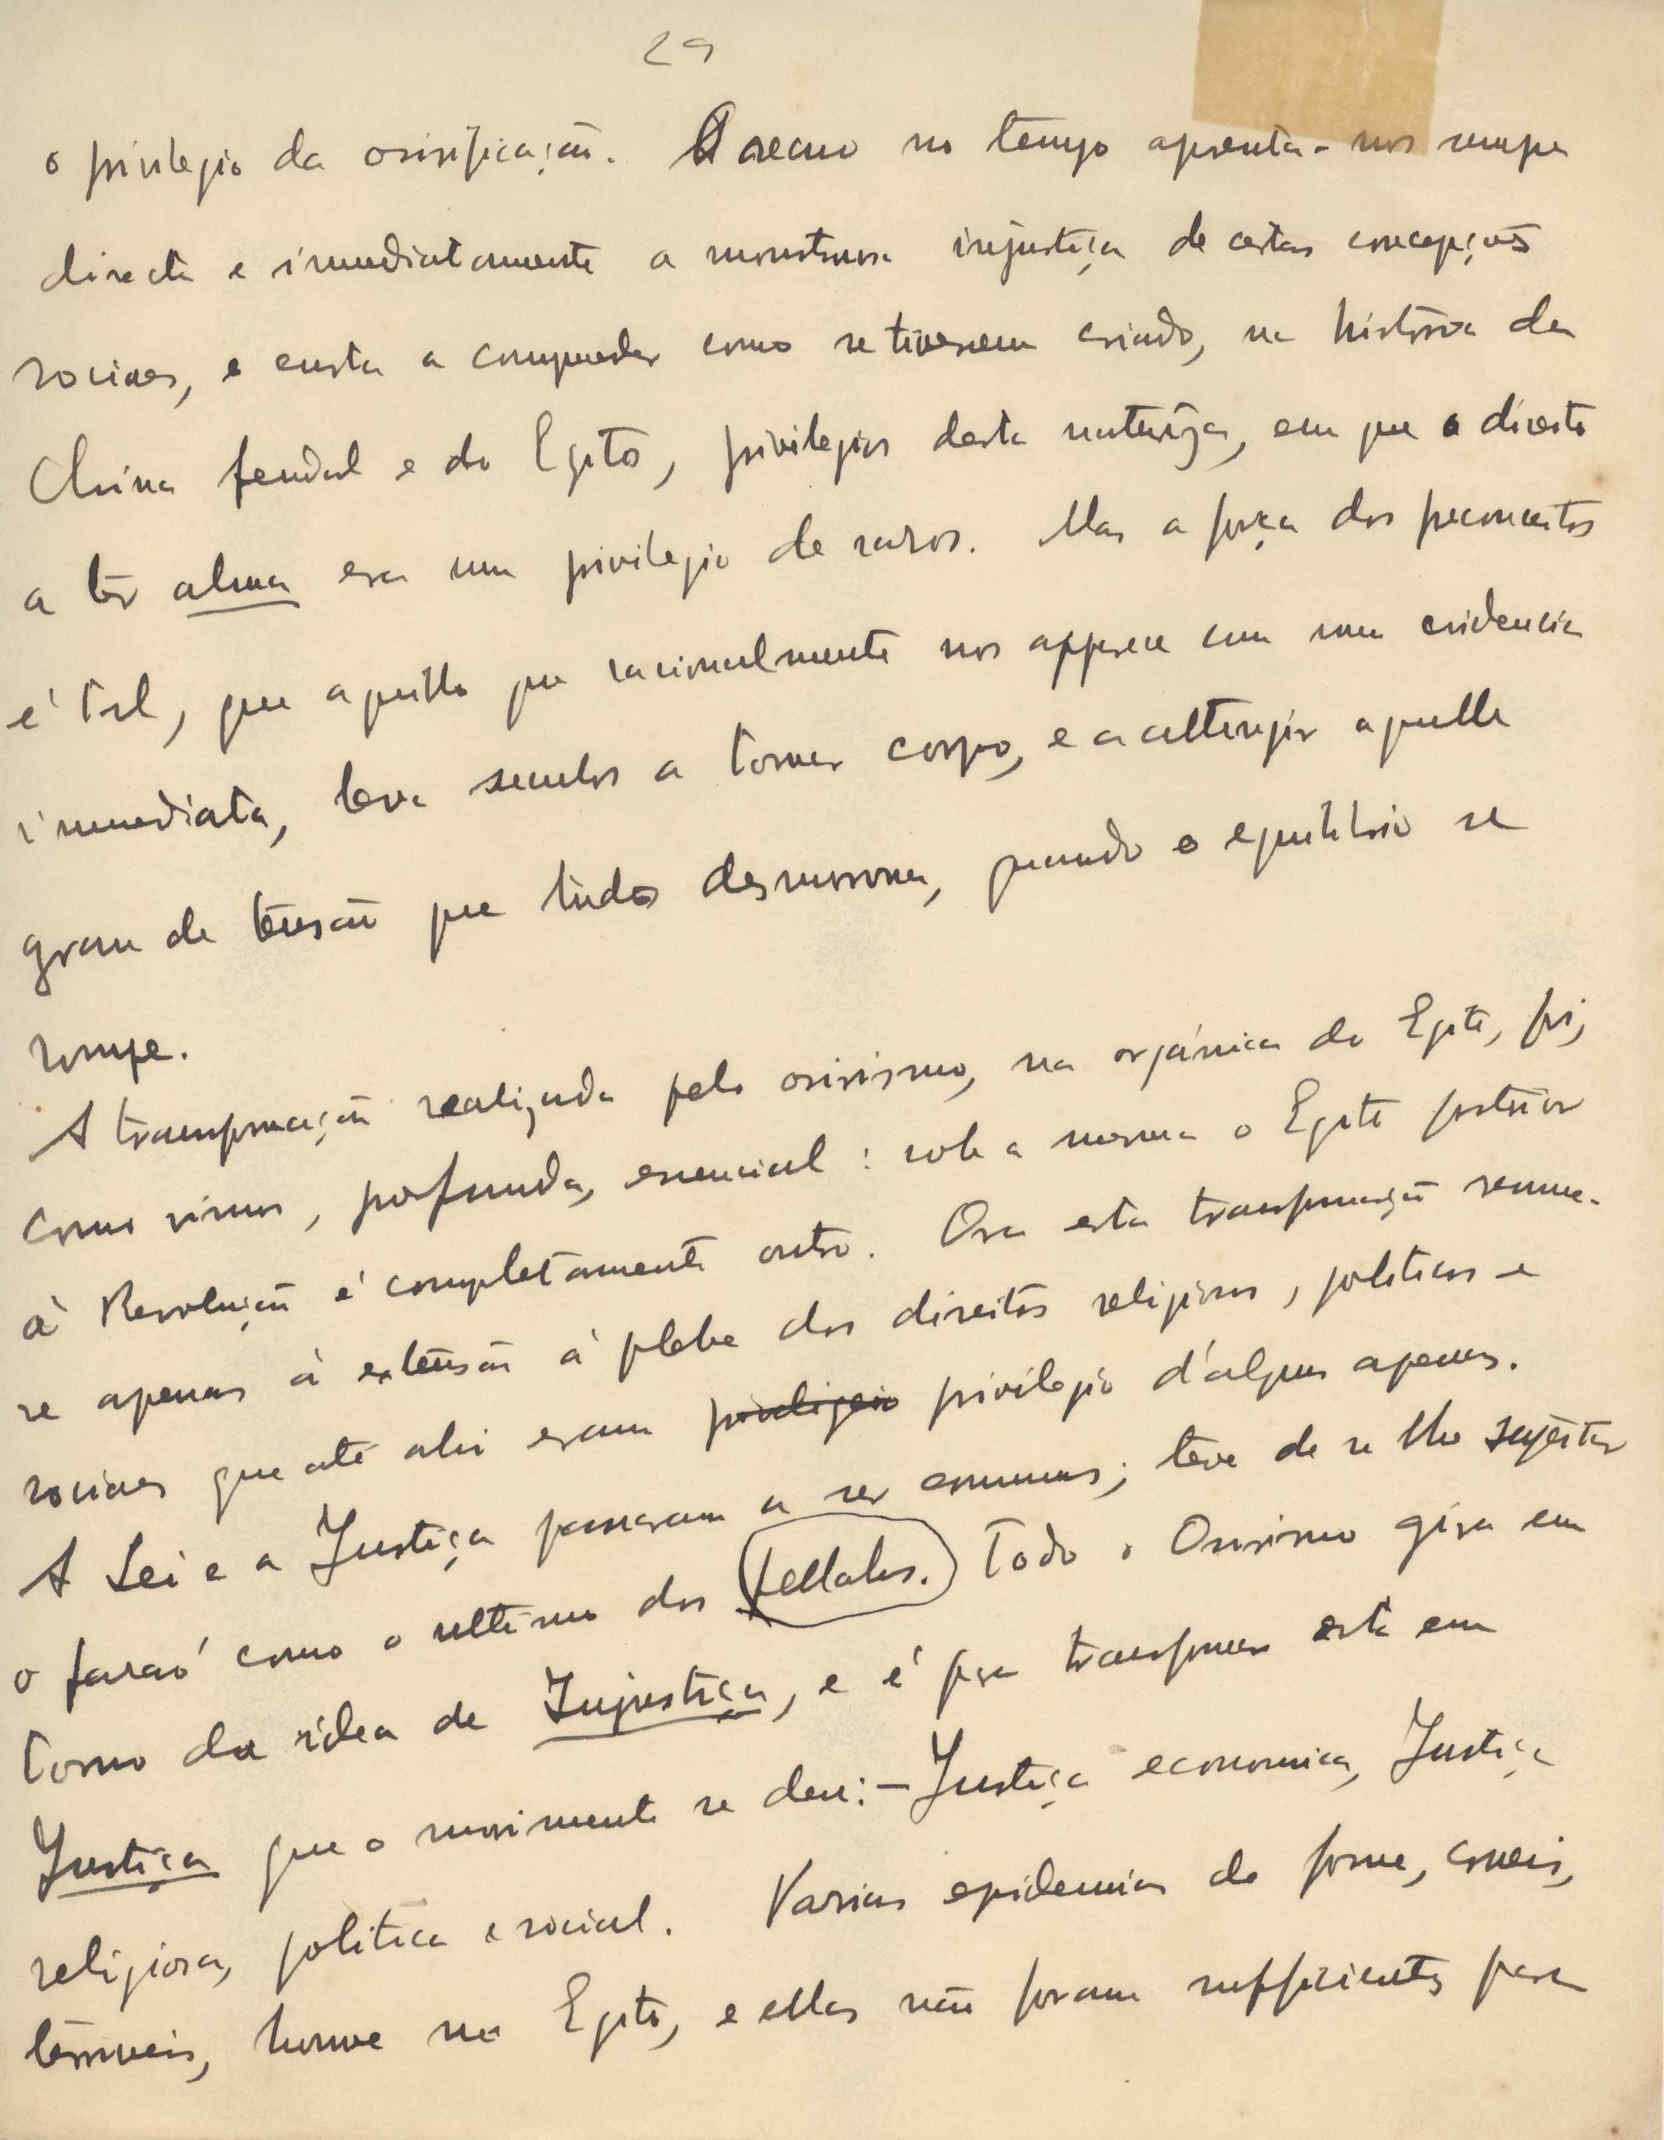 29
o privilegio da osirificação. O recuo no tempo apresenta-nos sempre
directa e immediatamente a monstruosa injustiça de certas concepções
sociaes, e custa a comprender como se tivessem criado, na história da
China feudal e do Egito, privilegios desta natureza, em que o direito
a ter alma era um privilegio de raros. Mas a força dos preconceitos
é tal, que aquillo que racionalmente nos apparece com uma evidencia
immediata, leva seculos a tomar corpo, e a attingir aquelle
grau de tensão que tudo desmorona, quando o equilibrio se
rompe.
A transformação realizada pelo osirismo, na orgánica do Egito, foi,
como vimos, profunda, essencial: sob a mesma o Egito posterior
à Revolução é completamente outro. Ora esta transformação resume-
se apenas à extensão à plebe dos direitos religiosos, politicos e
sociaes que até ahi eram privilegio privilegio d'alguns apenas.
A Lei e a Justiça passaram a ser communs; teve de se lhe sujeitar
o faraó como o ultimo dos fellahs. Todo o Osirismo gira em
torno da idea de Injustiça, e é para transformar esta em
Justiça que o movimento se deu: – Justiça economica, Justiça
religiosa, politica e social. Varias epidemias de fome, crueis,
terriveis, houve no Egito, e ellas não foram sufficientes para